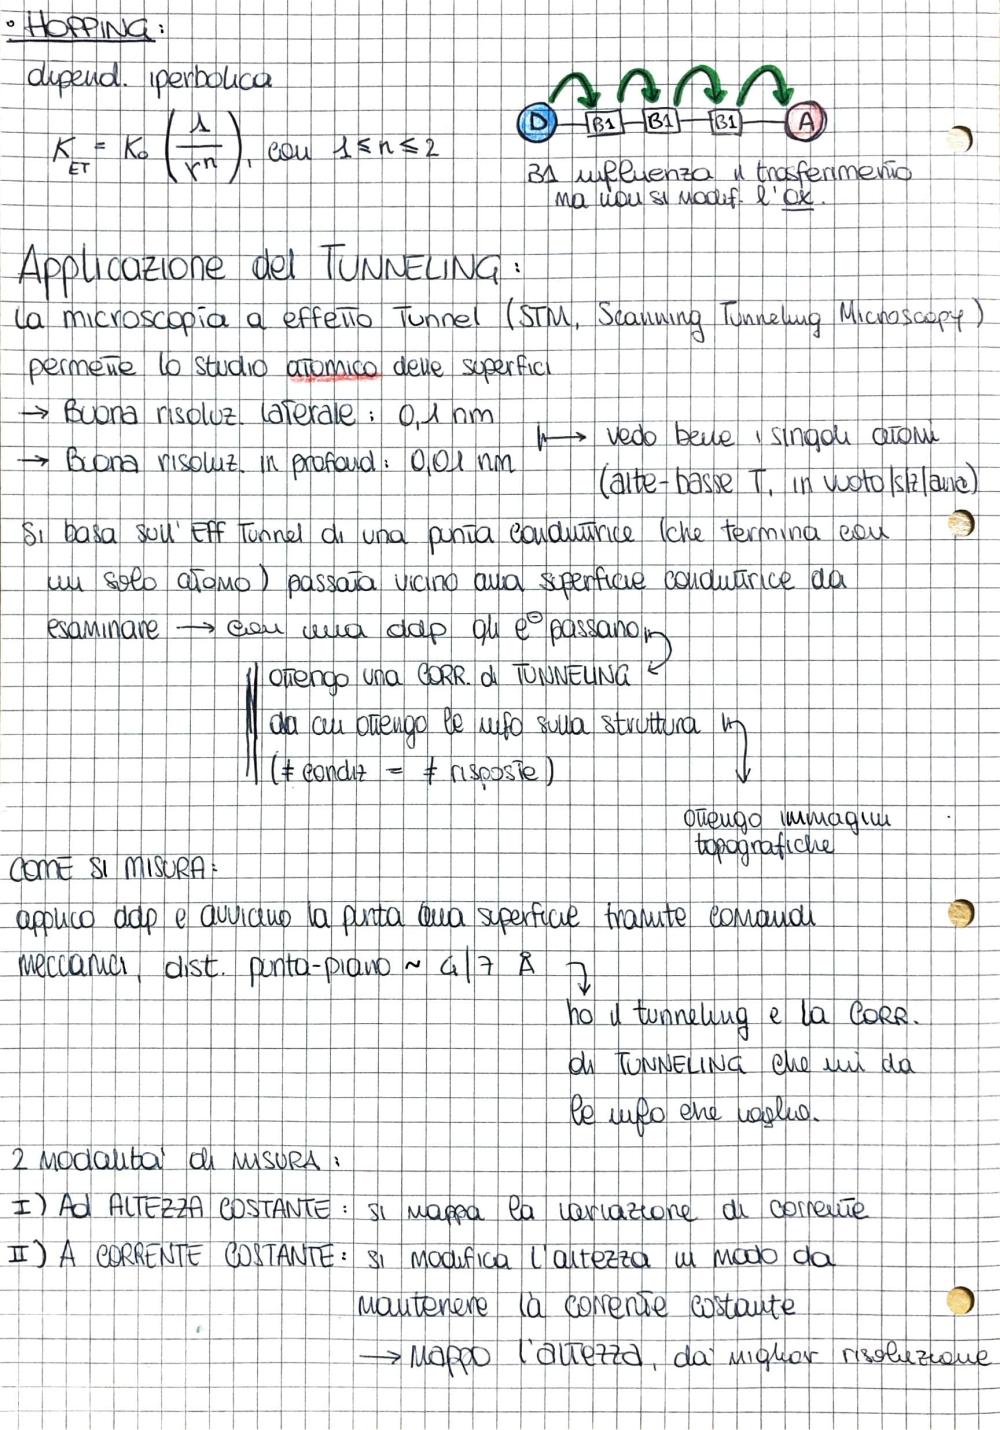 • HOPPING:
dipend. iperbolica
K_ET = K₀ (1/rⁿ), con 1 ≤ n ≤ 2
D B1 B1 B1 A
B1 influenza il trasferimento
ma non si modif. l'ox.
Applicazione del TUNNELING:
La microscopia a effetto Tunnel (STM, Scanning Tunneling Microscopy)
permette lo studio atomico delle superfici
→ Buona risoluz. laterale: 0,1 nm
→ Buona risoluz. in profond: 0,01 nm
↦ vedo bene i singoli atomi
(alte-basse T, in vuoto/slz/aria)
Si basa sull' Eff Tunnel di una punta conduttrice (che termina con
un solo atomo) passata vicino alla superficie conduttrice da
esaminare → con una ddp gli e⊖ passano
ottengo una CORR. di TUNNELING
da cui ottengo le info sulla struttura
(≠ condiz = ≠ risposte)
ottengo immagini
topografiche
COME SI MISURA:
applico ddp e avvicino la punta alla superficie tramite comandi
meccanici, dist. punta-piano ~ 4/7 Å
ho il tunneling e la CORR.
di TUNNELING che mi da
le info che voglio.
2 Modalita' di MISURA:
I) Ad ALTEZZA COSTANTE: si mappa la variazione di corrente
II) A CORRENTE COSTANTE: si modifica l'altezza in modo da
mantenere la corrente costante
→ Mappo l'altezza, da' miglior risoluzione